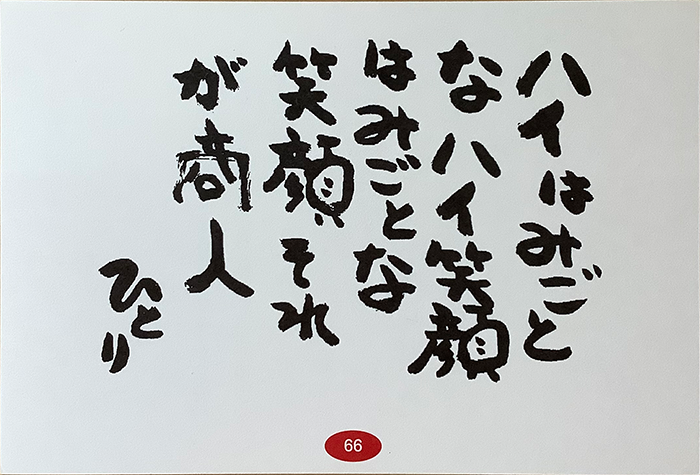 ハイはみごと
なハイ笑顔
はみごとな
笑顔それ
が商人
ひとり
66